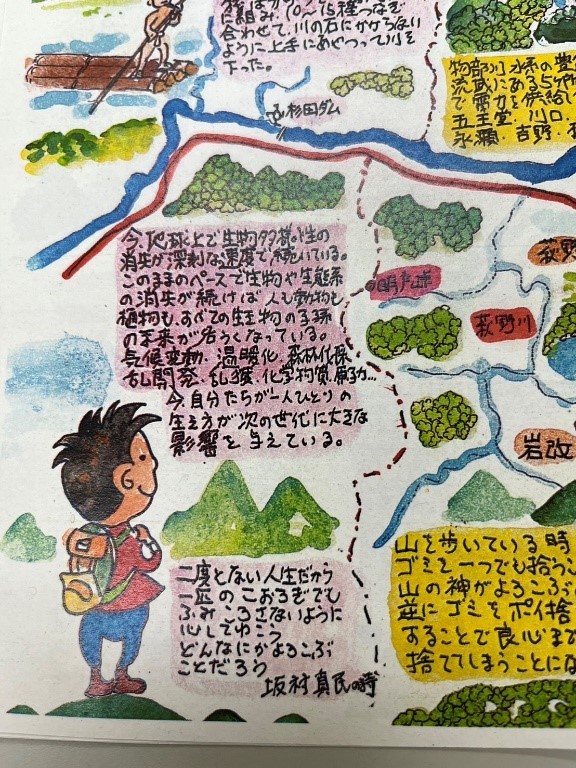 に組み、10〜15種つなぎ
合わせて川の石にかけらない
ように上手にあやつって川を
下った。
杉田ダム
物部川水系の豊
流域にある5ヶ所
で電力を供給し
五王堂、川口、
永瀬、吉野、杉
今、地球上で生物多様性の
消失が深刻な速度で続いている。
このままのペースで生物や生態系
の消失が続けば人も動物も
植物もすべての生き物の子孫
の未来が危うくなっている。
気候変動・温暖化・森林伐採
乱開発・乱獲・化学物質・原子力…
今、自分たちが一人ひとりの
生き方が次の世代に大きな
影響を与えている。
萩野
萩野川
岩改
二度とない人生だから
一匹のこおろぎでも
ふみころさないように
心してゆこう
どんなにかよろこぶ
ことだろう
坂村真民の詩
山を歩いている時
ゴミを一つでも拾う
山の神がよろこぶ
逆にゴミをポイ捨
することで良心ま
捨ててしまうことにな